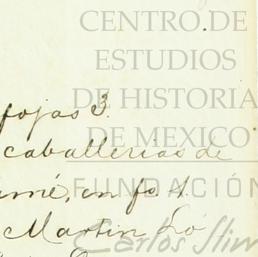 CENTRO DE
ESTUDIOS
DE HISTORIA
DE MEXICO
FUNDACIÓN
Carlos Slim
fojas 3.
caballerias de
umé, en fs 1.
Martin Ló